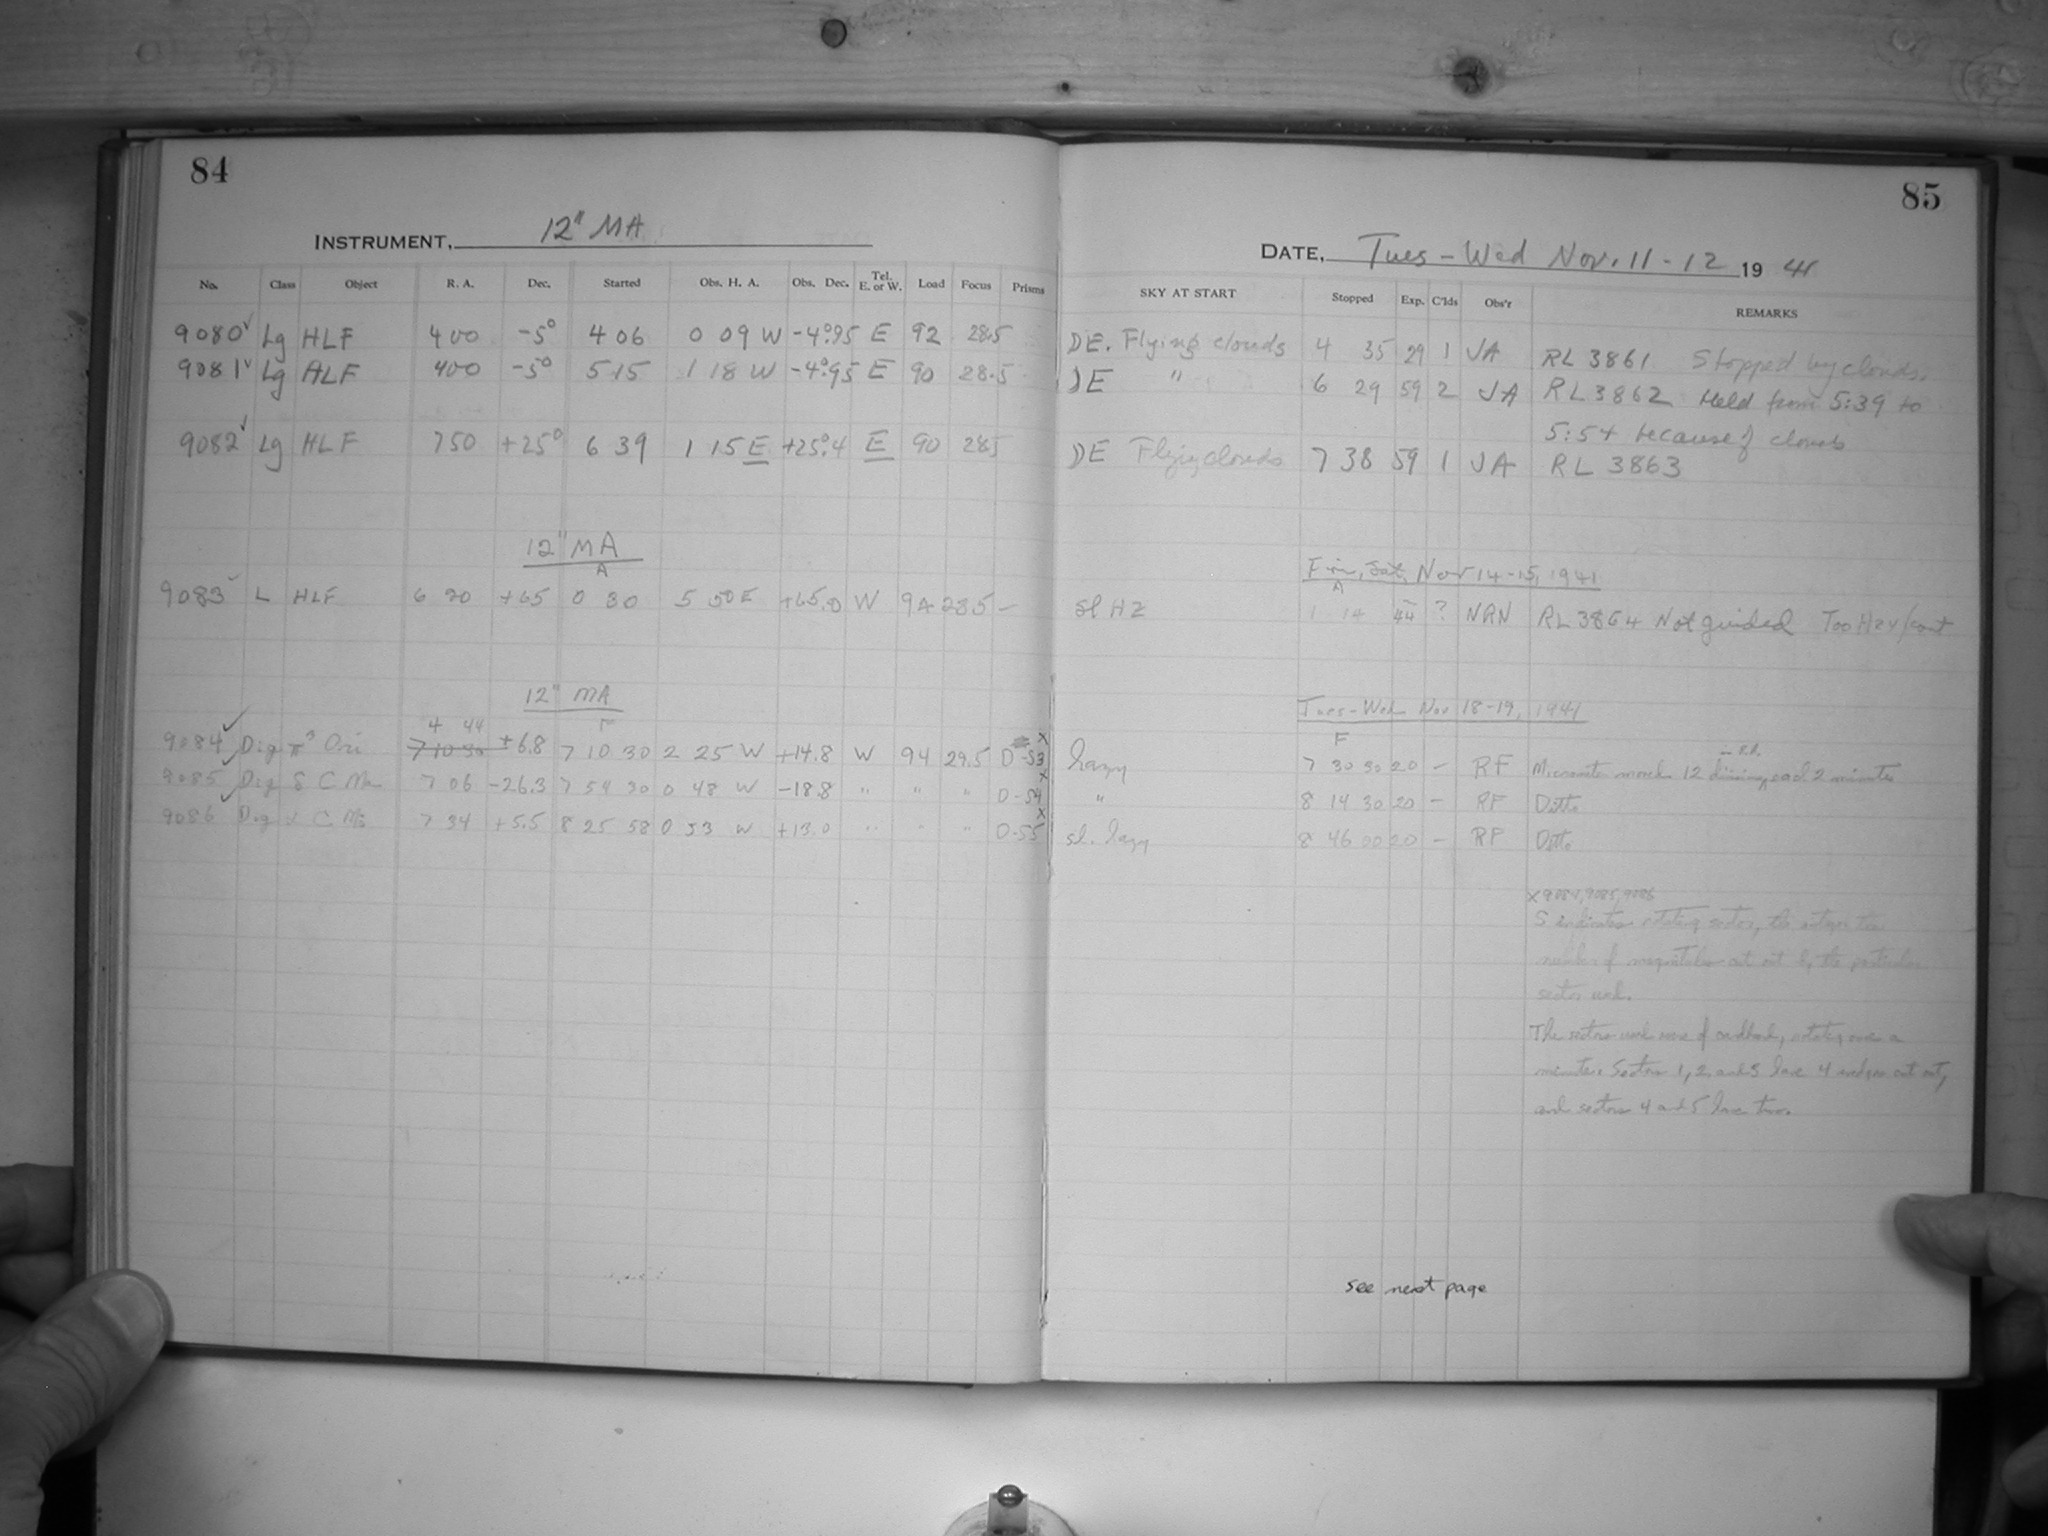 84
INSTRUMENT, 12" MA
No. Class Object R. A. Dec. Started Obs. H. A. Obs. Dec. Tel. E. or W. Load Focus Prisms
9080✓ Lg HLF 4 00 -5° 4 06 0 09 W -4°.95 E 92 28.5
9081✓ Lg HLF 4 00 -5° 5 15 1 18 W -4°.95 E 90 28.5
9082✓ Lg HLF 7 50 +25° 6 39 1 15 E +25°.4 E 90 285
12" MA
A
9083✓ L HLF 6 20 +65 0 30 5 50 E +65.0 W 94 28.5 —
12" MA
4 44 F
9084✓ Dig π³ Ori 7 10 30 +6.8 7 10 30 2 25 W +14.8 W 94 29.5 D-S3 x
9085 Dig δ C Ma 7 06 -26.3 7 54 30 0 48 W -18.8 " " " D-S4 x
9086✓ Dig C Mi 7 34 +5.5 8 25 58 0 53 W +13.0 " " " D-S5 x
85
DATE, Tues - Wed Nov. 11 - 12 19 41
SKY AT START Stopped Exp. C'lds Obs'r REMARKS
DE. Flying clouds 4 35 29 1 JA RL 3861 Stopped by clouds.
DE " 6 29 59 2 JA RL 3862 Held from 5:39 to
5:54 because of clouds
DE Flying clouds 7 38 59 1 JA RL 3863
Fri, Sat, Nov 14-15, 1941
A
sl HZ 1 14 44 ? NRN RL 3864 Not guided Too HZY/
Tues-Wed Nov 18-19, 1941
F
hazy 7 30 30 20 — RF moved 12 each 2 minutes
" 8 14 30 20 — RF Ditto
sl. hazy 8 46 00 20 — RF Ditto
x 9084, 9085, 9086
S indicates rotating sector, the integer the
number of magnitudes cut out by the particular
sector used.
The sectors used were of cardboard, rotating once a
minute. Sectors 1, 2, and 3 have 4 wedges cut out,
and sectors 4 and 5 have two.
see next page